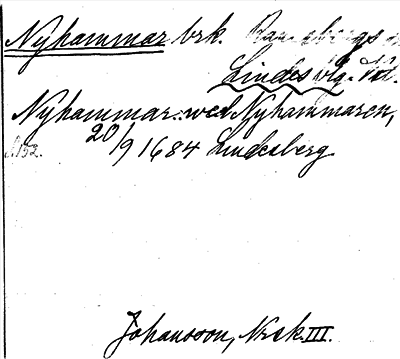 Nyhammar brk. Ramsbergs
Lindes blg. Vstl.
Nyhammar: wed Nyhammaren,
20/9 1684 Lindesberg
Johansson, Norask. III.